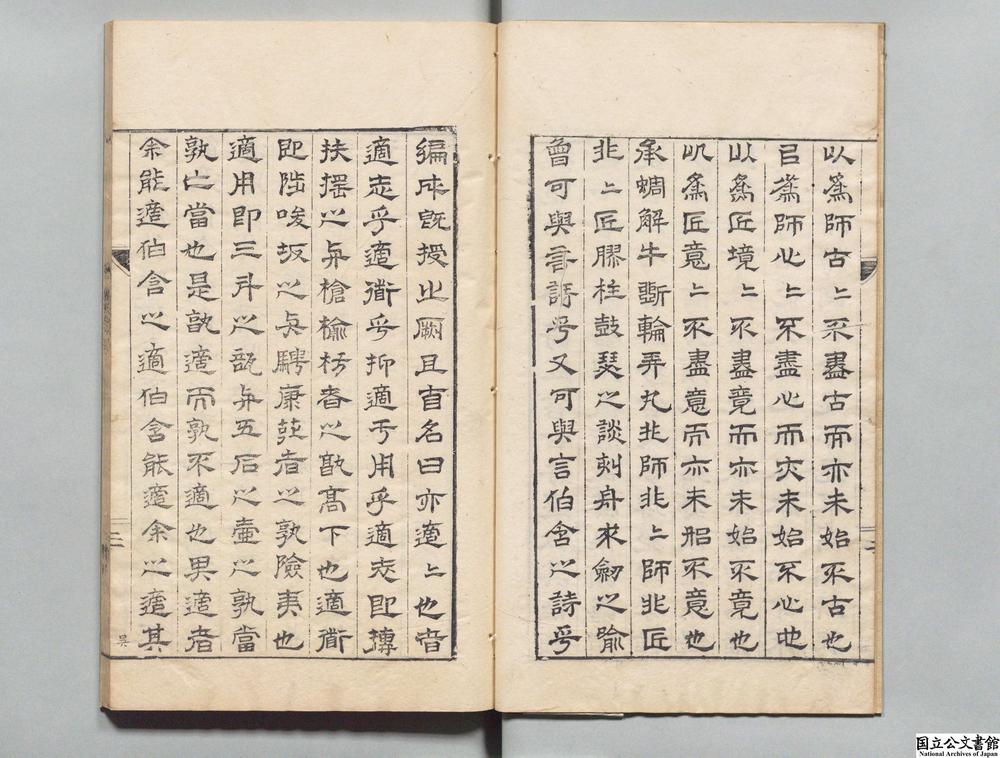 以爲師古〻不盡古而亦未始不古也
吕爲師心〻不盡心而亦未始不心也
以爲匠境〻不盡竟而亦未始不竟也
以爲匠意〻不盡意而亦未始不意也
承蜩解牛斲輪弄丸北師北〻師北匠
北〻匠膠柱鼓瑟之談刻舟求劒之喻
曾可與言詩乎又可與言伯含之詩乎
編成既授之厥且首名曰亦適〻也昔
適志乎適衜乎抑適于用乎適志即摶
扶搖之與槍榆枋者之孰高下也適衜
即陟峻坂之與騁康莊者之孰險夷也
適用即三斗之瓿與五石之壷之孰當
孰亡當也是孰適而孰不適也果適者
余能適伯含之適伯含能適余之適其
吴
国立公文書館
National Archives of Japan